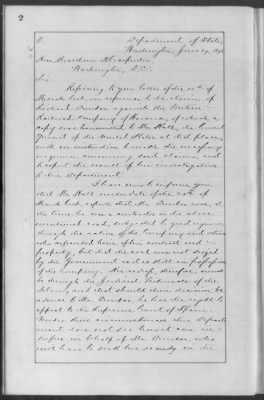 2
Department of State
Washington, June 29, 187
Hon. Carpenter,
Washington, D.C.
Sir:
Referring to your letter of the 10th of
March last, in reference to the claim of
Richard Dunbar against the
Railroad Company of Havana, of which a
copy was transmitted to Mr. Hall, the Consul
General of the United States at that place,
with an instruction to make the necessary
inquiries concerning said claim, and
to report the result of his investigation
to this Department.
I have now to inform you
that Mr. Hall under date of the
last, reports that Mr. Dunbar was, at
the time he was a contractor on the above
mentioned road, subjected to great injustice
through the action of the Company and others
who expended here, often and
properly, but that the road was not
by the Government and is still in possession
of the Company. His redress, therefore, must
be through the Judicial Tribunals of the
Island, and that should their decision be
adverse to Mr. Dunbar, he has the right to
appeal to the Supreme Court of Spain.
Under these circumstances this Depart-
ment does not see how it can in-
terfere in behalf of Mr. Dunbar, who
will have to seek his remedy in the